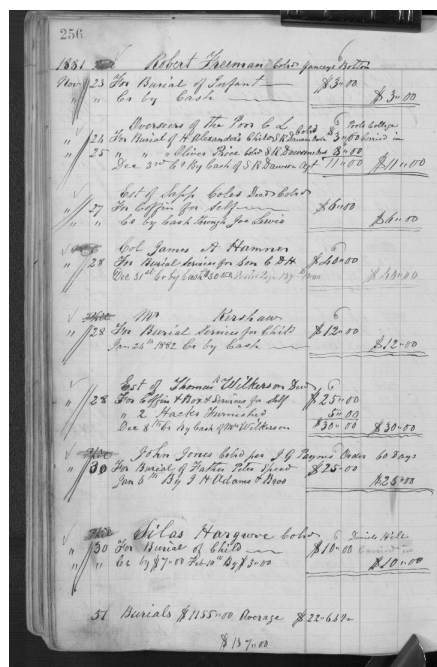 256
1881 Robert Freeman Cold Yanceys Bottom
Nov 23 For Burial of Infant $3.00
" " Cr by Cash $3.00
Overseers of the Poor C L
" 24 For Burial of H Alexandria's Child S R Dawson 3.00
" 25 " " Oliver Rice Cold S R Dawson 8.00
Dec 3rd Cr By Cash of S R Dawson Agt 11.00 $11.00
Est of Sapp Coles Decd Cold
" 27 For Coffin for Self $6.00
" " Cr by Cash through Joe Lewis $6.00
Col James A Hamner
" 28 For Burial Services for Son C D H $40.00
Dec 31st Cr by Cash $30.00 $40.00
Mr Kershaw
" 28 For Burial Services for Child $12.00
Jan 24th 1882 Cr by Cash $12.00
Est of Thomas Wilkerson Decd
" 28 For Coffin & Box & Services for Self $25.00
" 2 Hacks Furnished 5.00
Dec 8th Cr By Cash of Wm Wilkerson $30.00 $30.00
John Jones Cold per J G Payne's Order 60 Days
" 30 For Burial of Father Peter Speed $25.00
Jan 5th By J H Adams & Bros $25.00
Silas Hargrove Cold Daniels Hill
" 30 For Burial of Child $10.00
" " Cr by $7.00 Feb 10th By $3.00 $10.00
51 Burials $1155.00 Average $22.64
$137.00